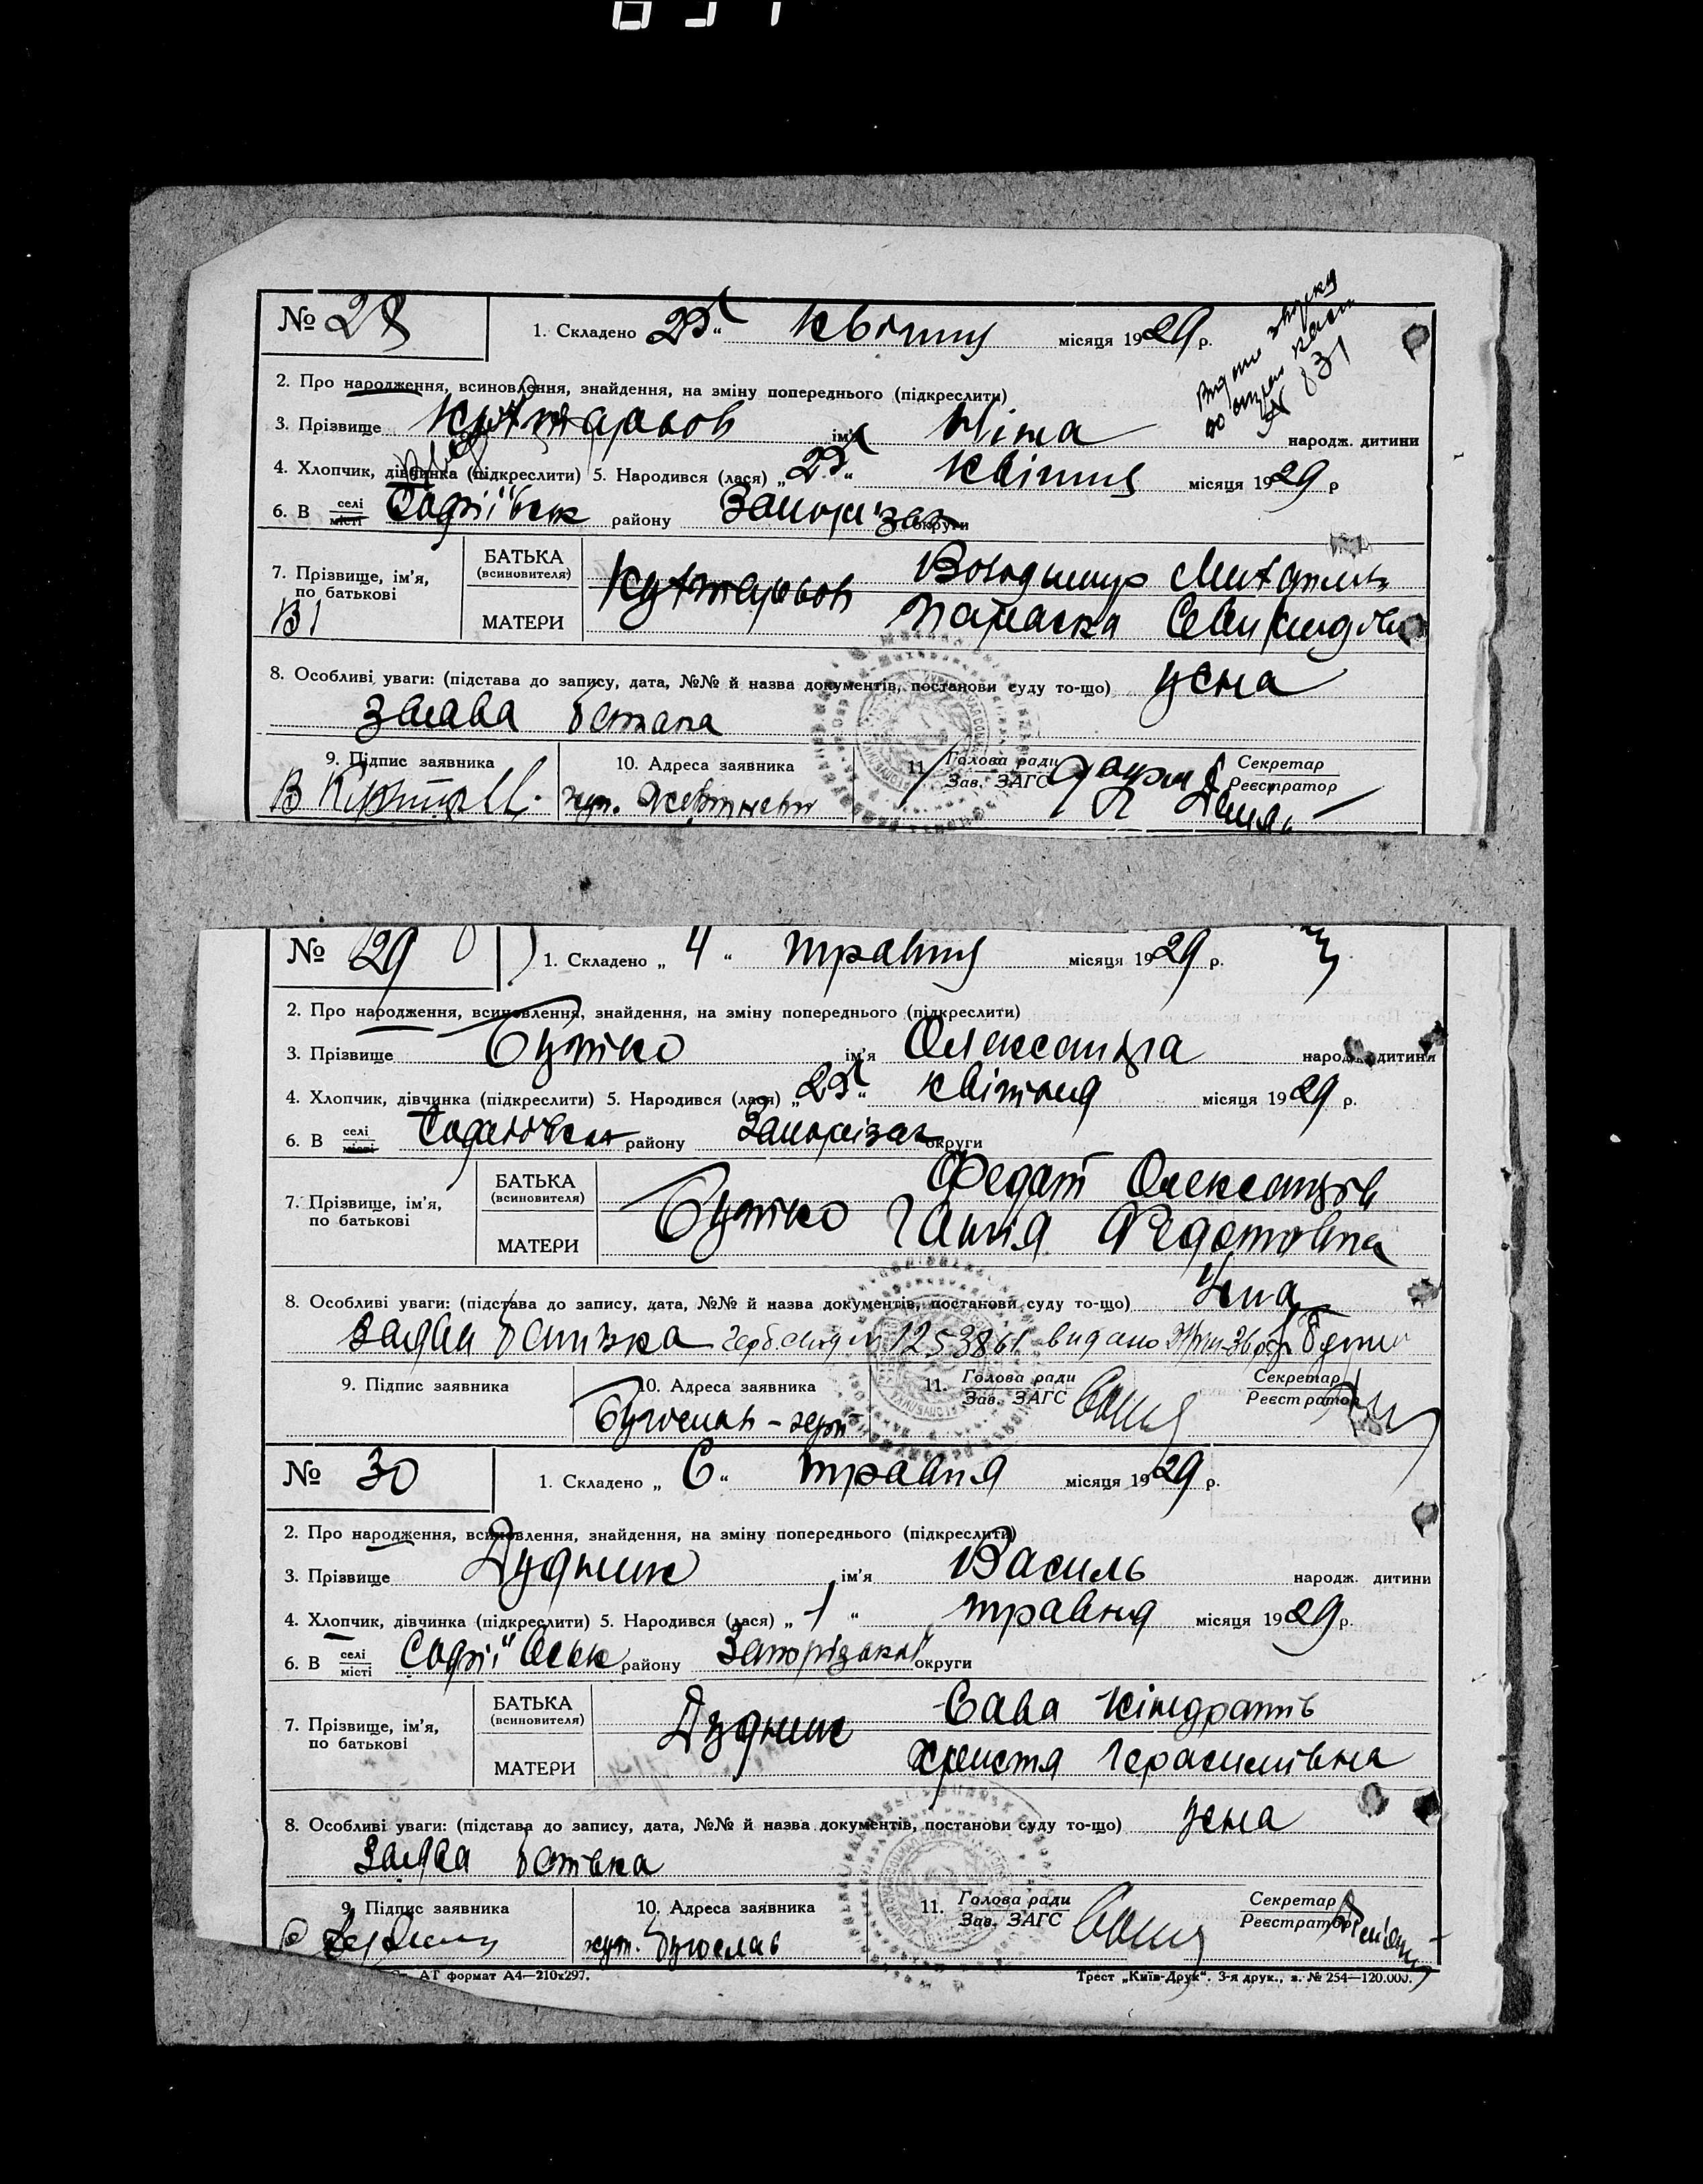 № 28 1. Складено „25“ квітня місяця 1929 р.
2. Про народження, всиновлення, знайдення, на зміну попереднього (підкреслити)
3. Прізвище ім'я Ніна народж. дитини
4. Хлопчик, дівчинка (підкреслити) 5. Народився (лася) „25“ квітня місяця 1929 р
6. В селі місті Софіївськ району Запоріз округи
7. Прізвище, ім'я, по батькові
БАТЬКА (всиновителя) Володимир
МАТЕРИ Параска
8. Особливі уваги: (підстава до запису, дата, №№ й назва документів, постанови суду то-що) усна
заява
9. Підпис заявника 10. Адреса заявника 11. Голова ради Зав. ЗАГС Секретар Реєстратор
хут.
№ 29 1. Складено „ 4 “ травня місяця 1929 р.
2. Про народження, всиновлення, знайдення, на зміну попереднього (підкреслити)
3. Прізвище Бутко ім'я Олександра народж. дитини
4. Хлопчик, дівчинка (підкреслити) 5. Народився (лася) „25“ квітня місяця 1929 р.
6. В селі місті Софіївськ району Запорізк округи
7. Прізвище, ім'я, по батькові
БАТЬКА (всиновителя) Бутко Федот Олександрів
МАТЕРИ Ганна Федотовна
8. Особливі уваги: (підстава до запису, дата, №№ й назва документів, постанови суду то-що) Усна
заява батька видано
9. Підпис заявника 10. Адреса заявника 11. Голова ради Зав. ЗАГС Секретар Реєстратор
№ 30 1. Складено „ 6 “ травня місяця 1929 р.
2. Про народження, всиновлення, знайдення, на зміну попереднього (підкреслити)
3. Прізвище Дудник ім'я Василь народж. дитини
4. Хлопчик, дівчинка (підкреслити) 5. Народився (лася) „ 1 “ травня місяця 1929 р.
6. В селі місті Софіївськ району Запорізької округи
7. Прізвище, ім'я, по батькові
БАТЬКА (всиновителя) Дудник Сава Кіндратів
МАТЕРИ Христя Герасимівна
8. Особливі уваги: (підстава до запису, дата, №№ й назва документів, постанови суду то-що) усна
заява батька
9. Підпис заявника 10. Адреса заявника 11. Голова ради Зав. ЗАГС Секретар Реєстратор
хут. Бугослав
АТ формат А4—210х297. Трест „Київ-Друк“. 3-я друк., з. № 254—120.000.